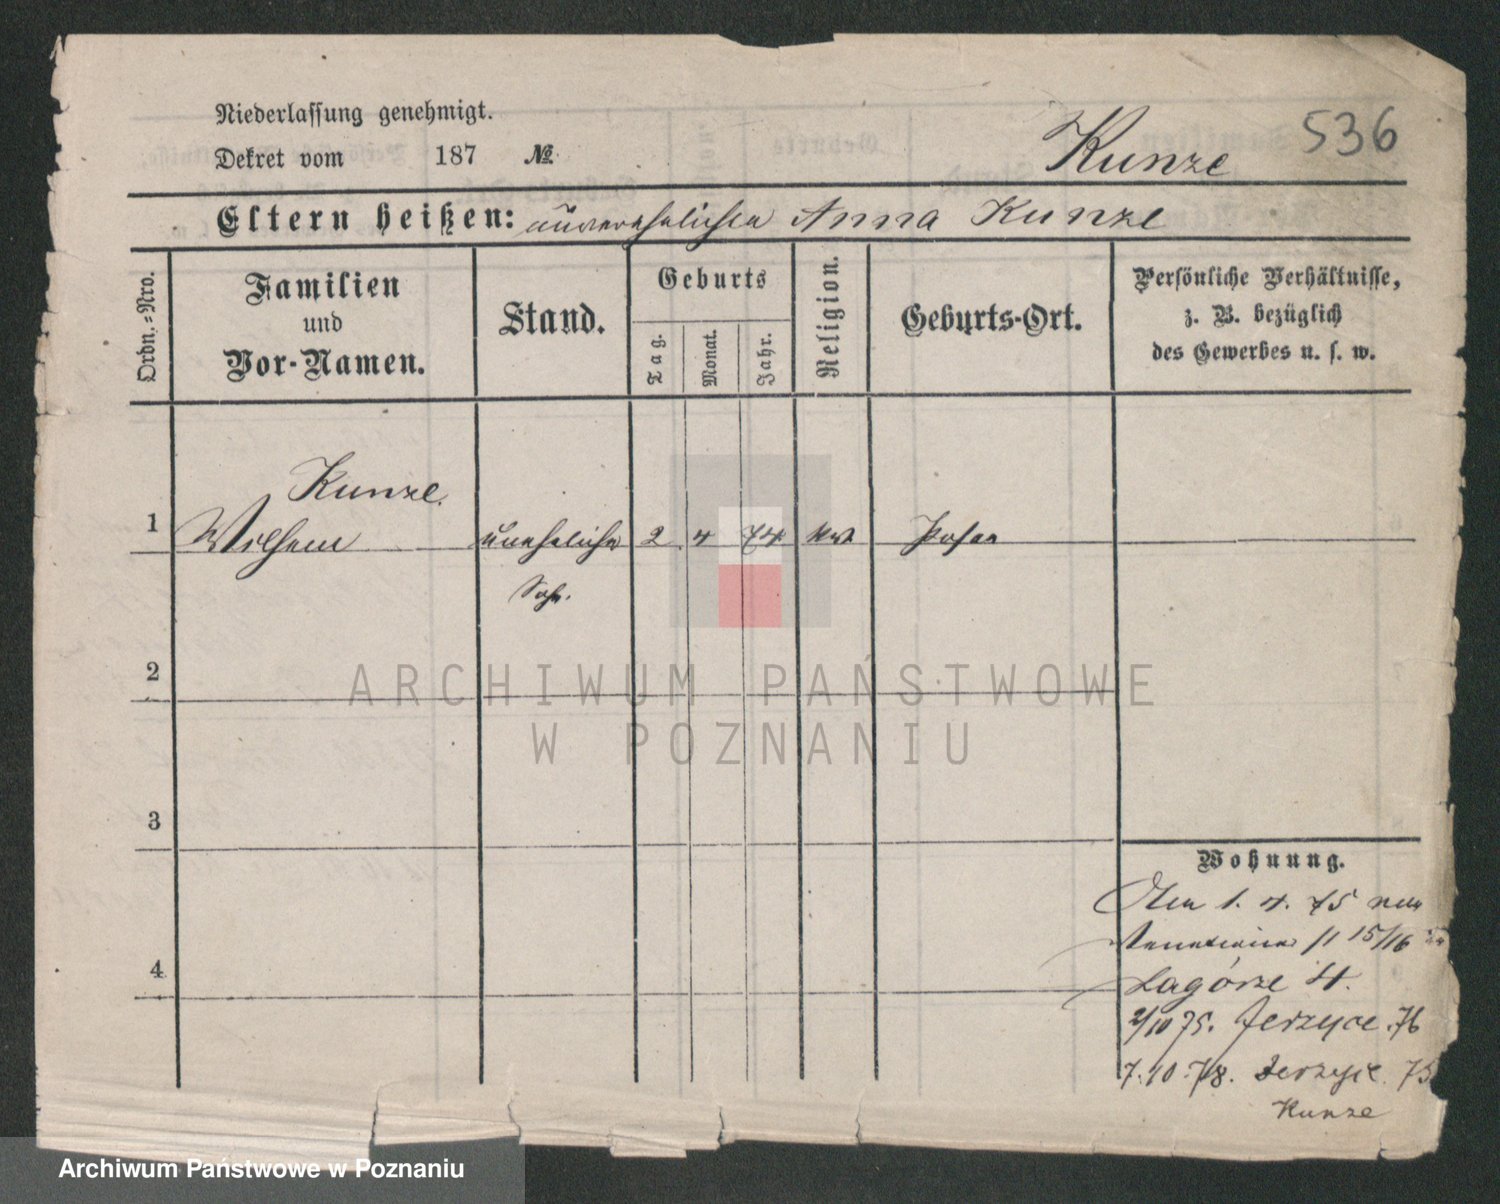 Niederlassung genehmigt.
Dekret vom 187 №
Kunze 536
Eltern heißen: unverehlichte Anna Kunze
Ordn.-Nro.
Familien und Vor-Namen.
Stand.
Geburts
Tag. Monat. Jahr.
Religion.
Geburts-Ort.
Persönliche Verhältnisse,
z. B. bezüglich
des Gewerbes u. s. w.
Kunze.
1 Wilhem unehelicher 2 4 74 Posen
Sohn.
2
ARCHIWUM PAŃSTWOWE
W POZNANIU
3
Wohnung.
Den 1. 4. 75 von
15/16
4
Zagórze 4.
2/10 75. Jerzyce. 76
7.10.78. Jerzyce. 75
Kunze
Archiwum Państwowe w Poznaniu